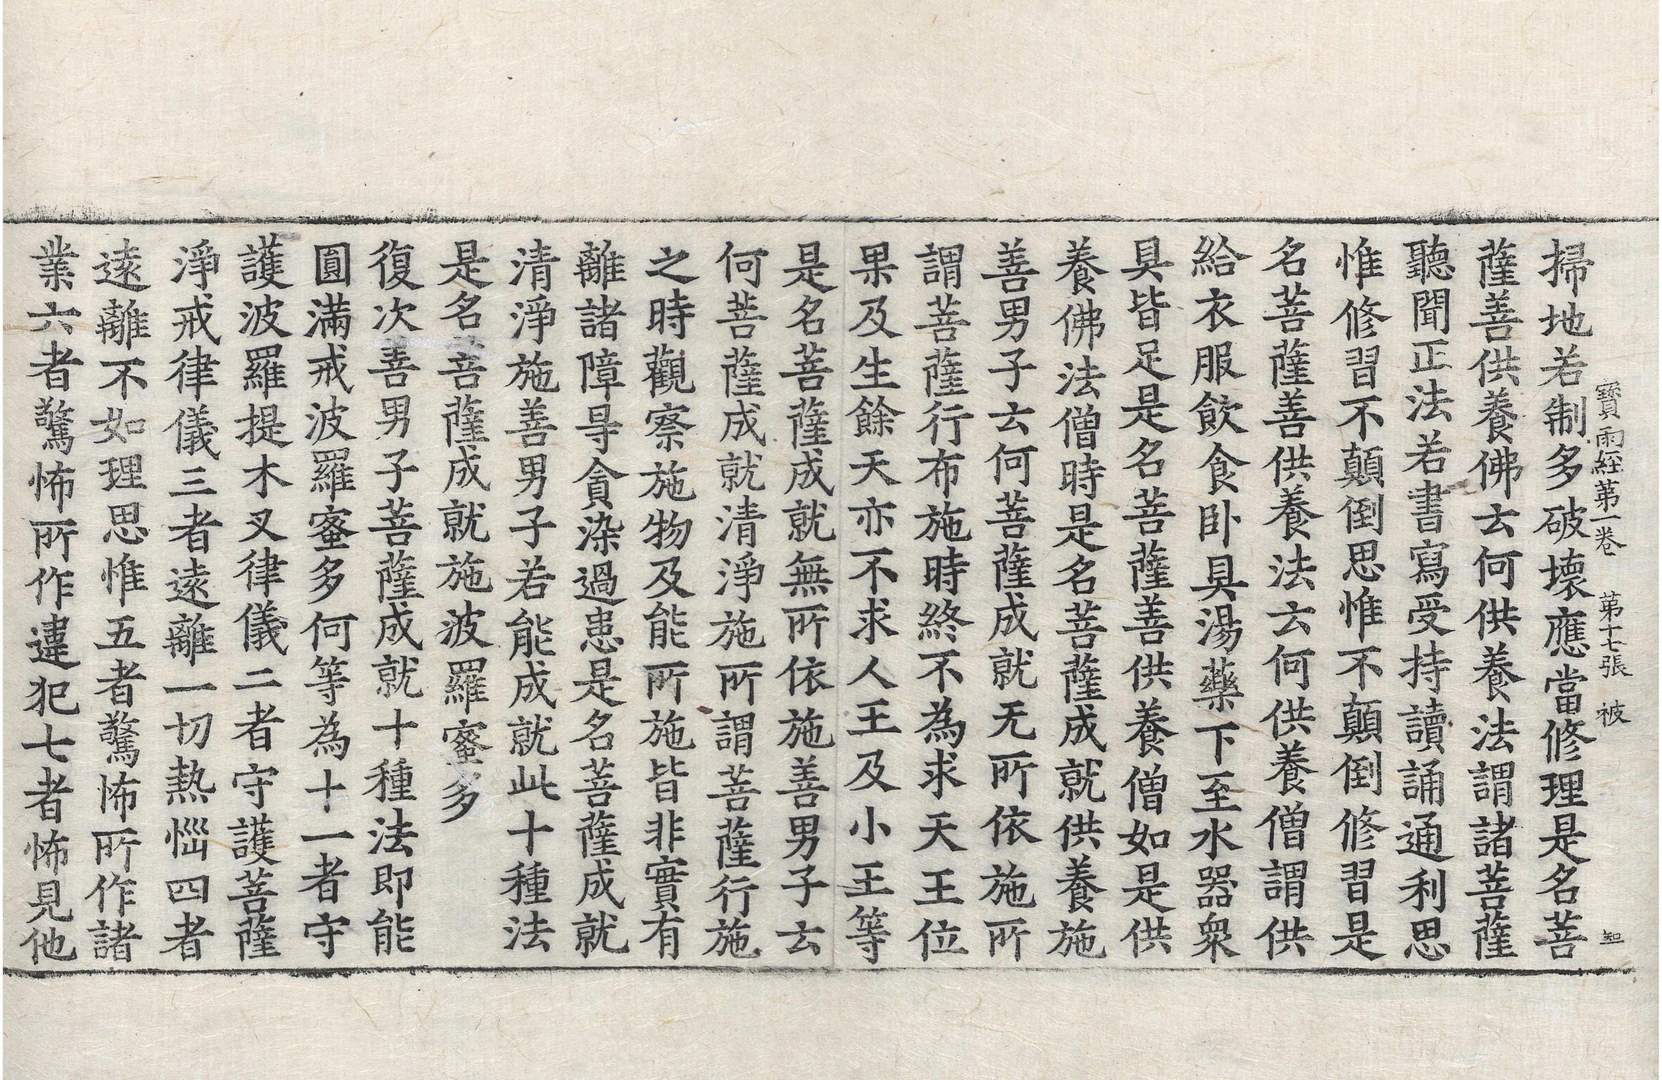 寶雨經第一卷 第十七張 被 知
掃地若制多破壞應當修理是名菩
薩善供養佛云何供養法謂諸菩薩
聽聞正法若書寫受持讀誦通利思
惟修習不顛倒思惟不顛倒修習是
名菩薩善供養法云何供養僧謂供
給衣服飲食卧具湯藥下至水器衆
具皆足是名菩薩善供養僧如是供
養佛法僧時是名菩薩成就供養施
善男子云何菩薩成就无所依施所
謂菩薩行布施時終不為求天王位
果及生餘天亦不求人王及小王等
是名菩薩成就無所依施善男子云
何菩薩成就清淨施所謂菩薩行施
之時觀察施物及能所施皆非實有
離諸障㝵貪染過患是名菩薩成就
清淨施善男子若能成就此十種法
是名菩薩成就施波羅蜜多
復次善男子菩薩成就十種法即能
圓滿戒波羅蜜多何等為十一者守
護波羅提木叉律儀二者守護菩薩
淨戒律儀三者遠離一切熱惱四者
遠離不如理思惟五者驚怖所作諸
業六者驚怖所作違犯七者怖見他